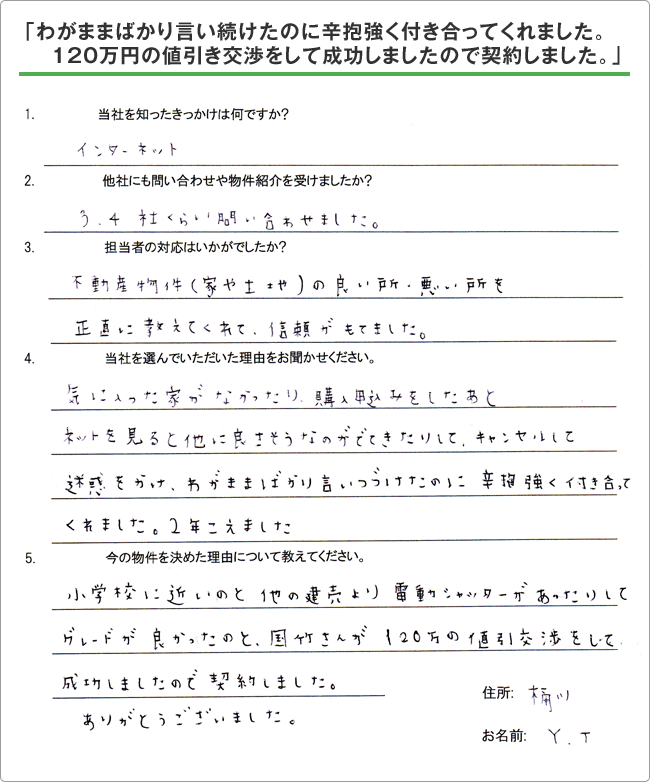 「わがままばかり言い続けたのに辛抱強く付き合ってくれました。
120万円の値引き交渉をして成功しましたので契約しました。」
1. 当社を知ったきっかけは何ですか?
インターネット
2. 他社にも問い合わせや物件紹介を受けましたか?
3.4社くらい問い合わせました。
3. 担当者の対応はいかがでしたか?
不動産物件(家や土地)の良い所・悪い所を
正直に教えてくれて、信頼がもてました。
4. 当社を選んでいただいた理由をお聞かせください。
気に入った家がなかったり、購入申込みをしたあと
ネットを見ると他に良さそうなのがでてきたりして、キャンセルして
迷惑をかけ、わがままばかり言いつづけたのに 辛抱強く付き合って
くれました。2年こえました
5. 今の物件を決めた理由について教えてください。
小学校に近いのと他の建売より電動シャッターがあったりして
グレードが良かったのと、国竹さんが120万の値引交渉をして、
成功しましたので契約しました。
ありがとうございました。
住所: 桶川
お名前: Y.T